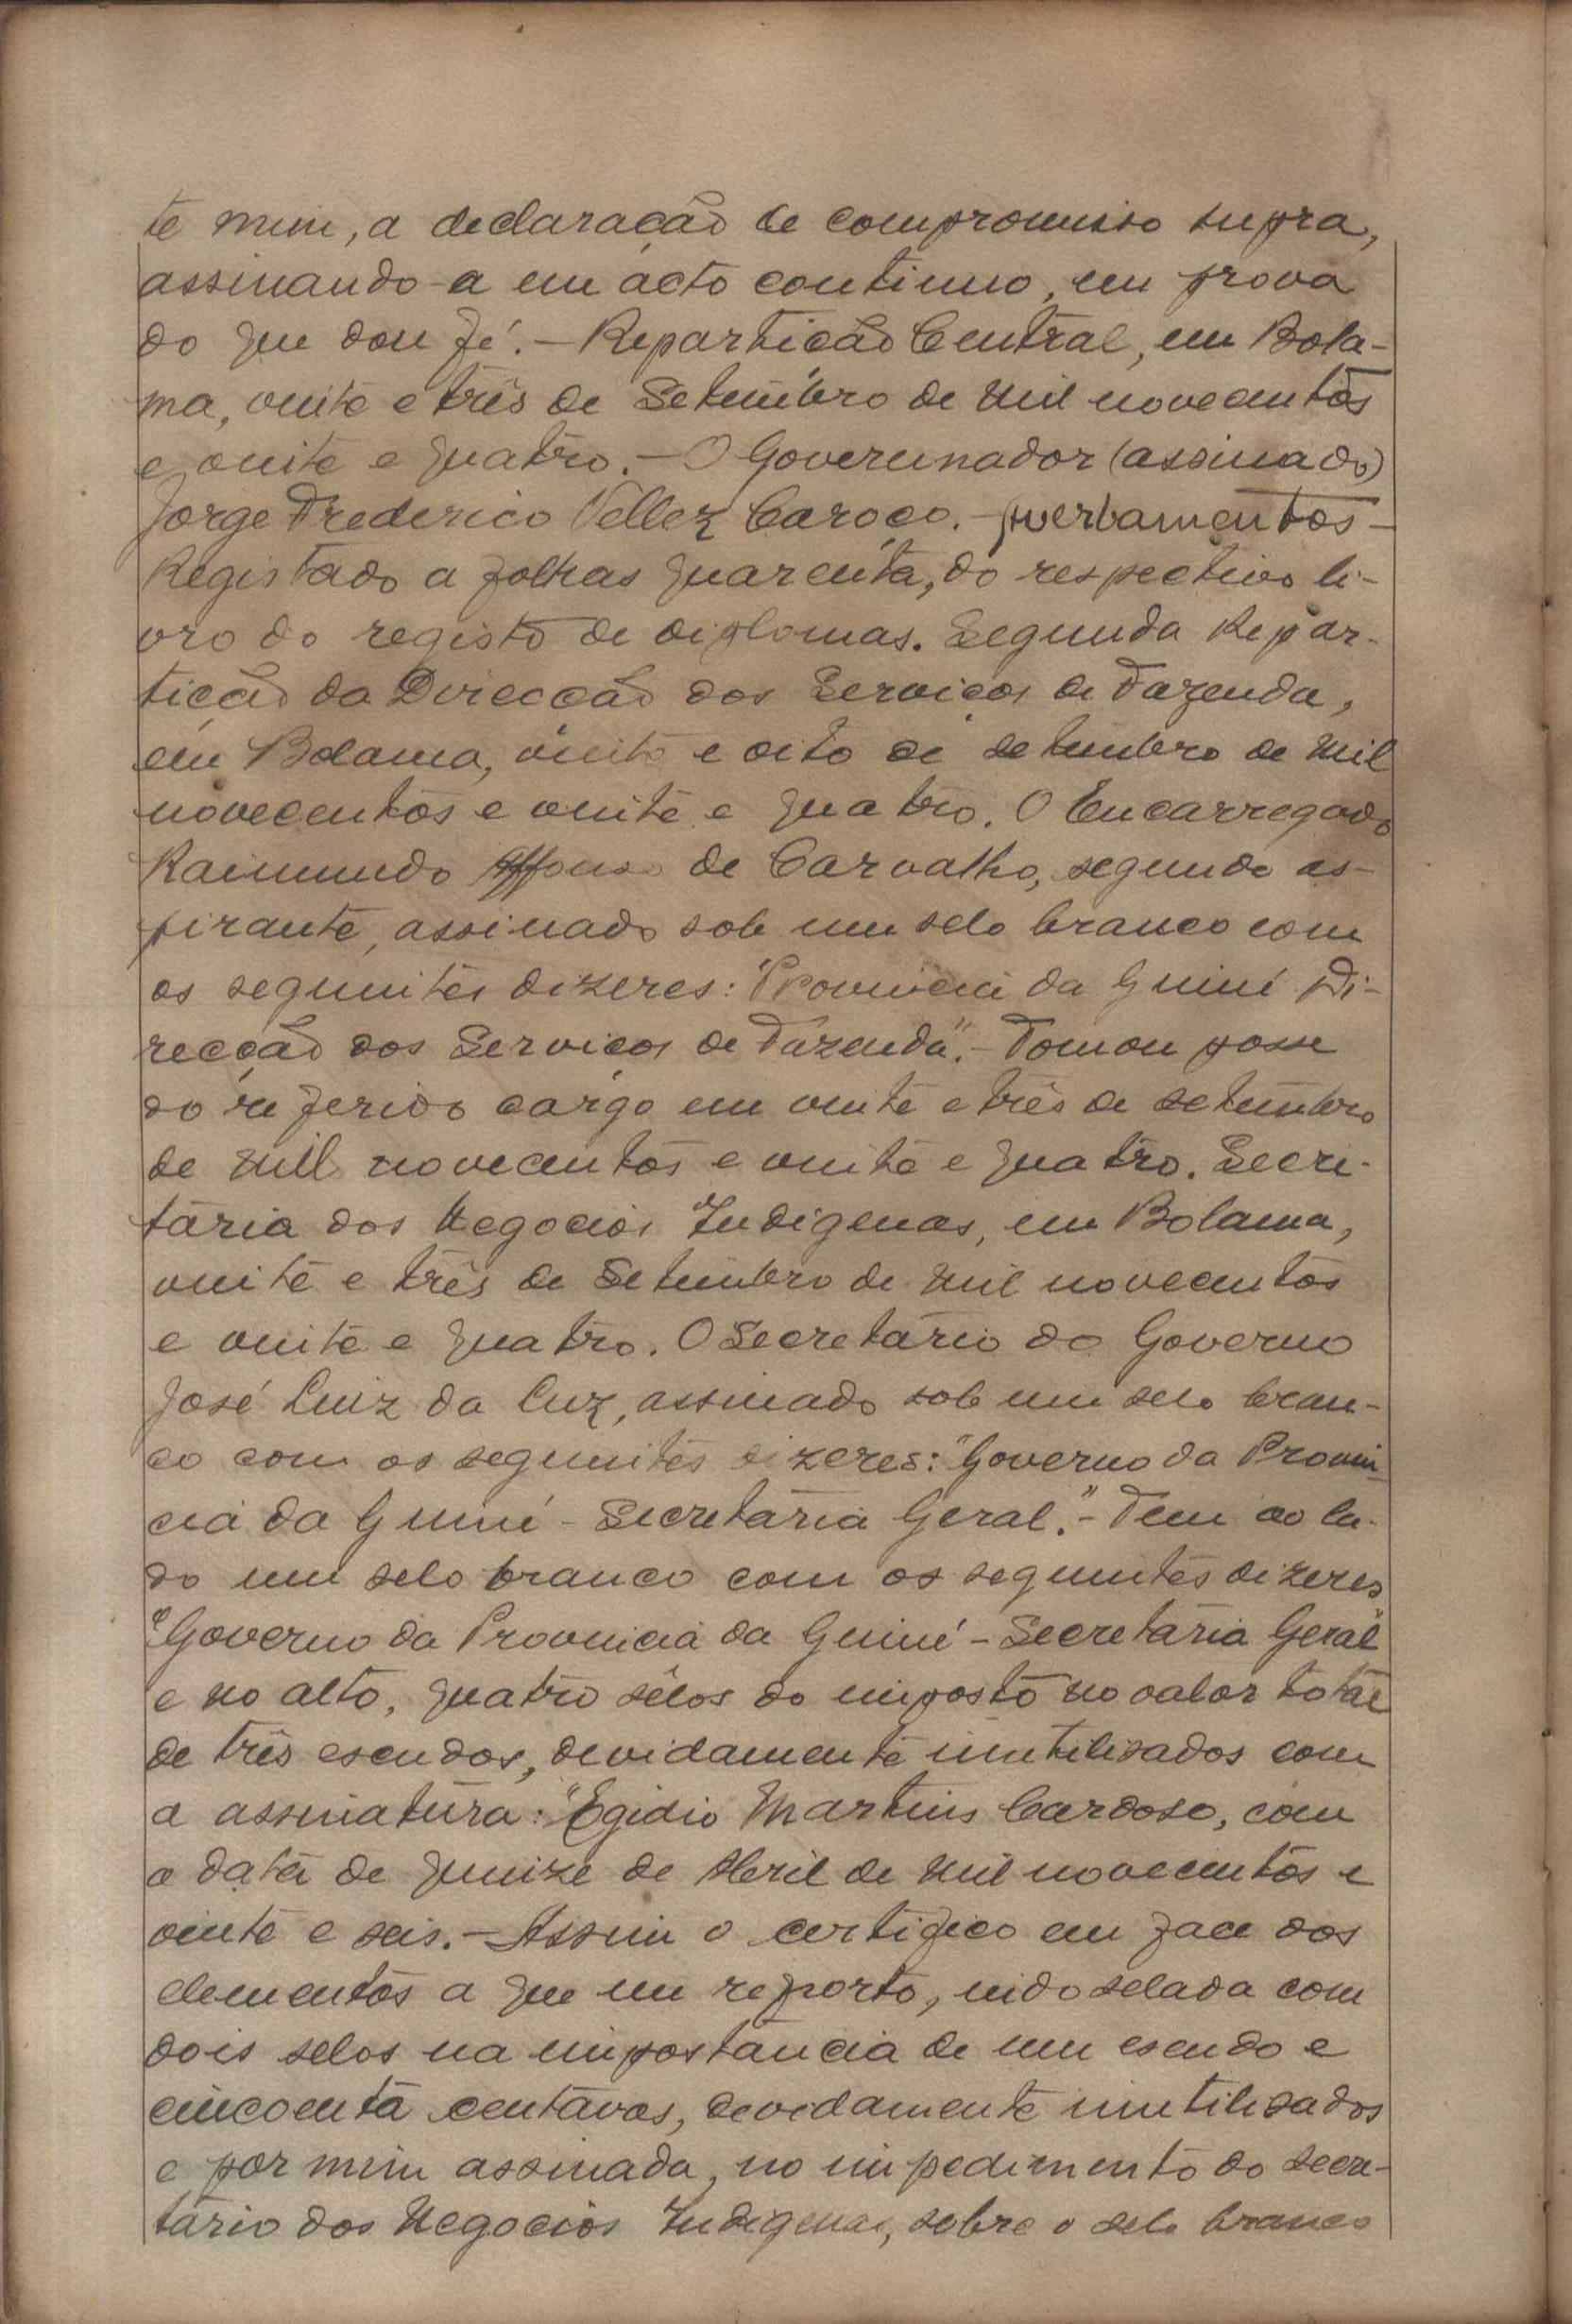 te mim, a declaração de compromisso supra,
assinando-a em acto continuo, em prova
do que dou fé. — Repartição Central, em Bola-
ma, vinte e três de Setembro de mil novecentos
e vinte e quatro. — O Governador (assinado)
Jorge Frederico Vellez Caroço. — Averbamentos —
Registado a folhas quarenta, do respectivo li-
vro do registo de diplomas. Segunda Repar-
tição da Direcção dos Serviços de Fazenda,
em Bolama, vinte e oito de setembro de mil
novecentos e vinte e quatro. O Encarregado
Raimundo Affonso de Carvalho, segundo as-
pirante, assinado sob um selo branco com
os seguintes dizeres: "Provincia da Guiné Di-
recção dos Serviços de Fazenda". — Tomou posse
do referido cargo em vinte e três de setembro
de mil novecentos e vinte e quatro. Secre-
tária dos Negocios Indigenas, em Bolama,
vinte e três de Setembro de mil novecentos
e vinte e quatro. O Secretário do Governo
José Luiz da Cuz, assinado sob um selo bran-
co com os seguintes dizeres: "Governo da Provin
cia da Guiné - Secretária Geral." - Tem ao la-
do um selo branco com os seguintes dizeres
"Governo da Provincia da Guiné - Secretária Geral"
e no alto, quatro sêlos do imposto no valor total
de três escudos, devidamente inutilisados com
a assinatura: "Egidio Martins Cardoso, com
a data de quinze de Abril de mil novecentos e
vinte e seis. — Assim o certifico em face dos
elementos a que me reporto, indo selada com
dois selos na impostancia de um escudo e
cincoenta centavos, devidamente inutilisados
e por mim assinada, no impedimento do secre-
tário dos Negocios Indigenas, sobre o selo branco